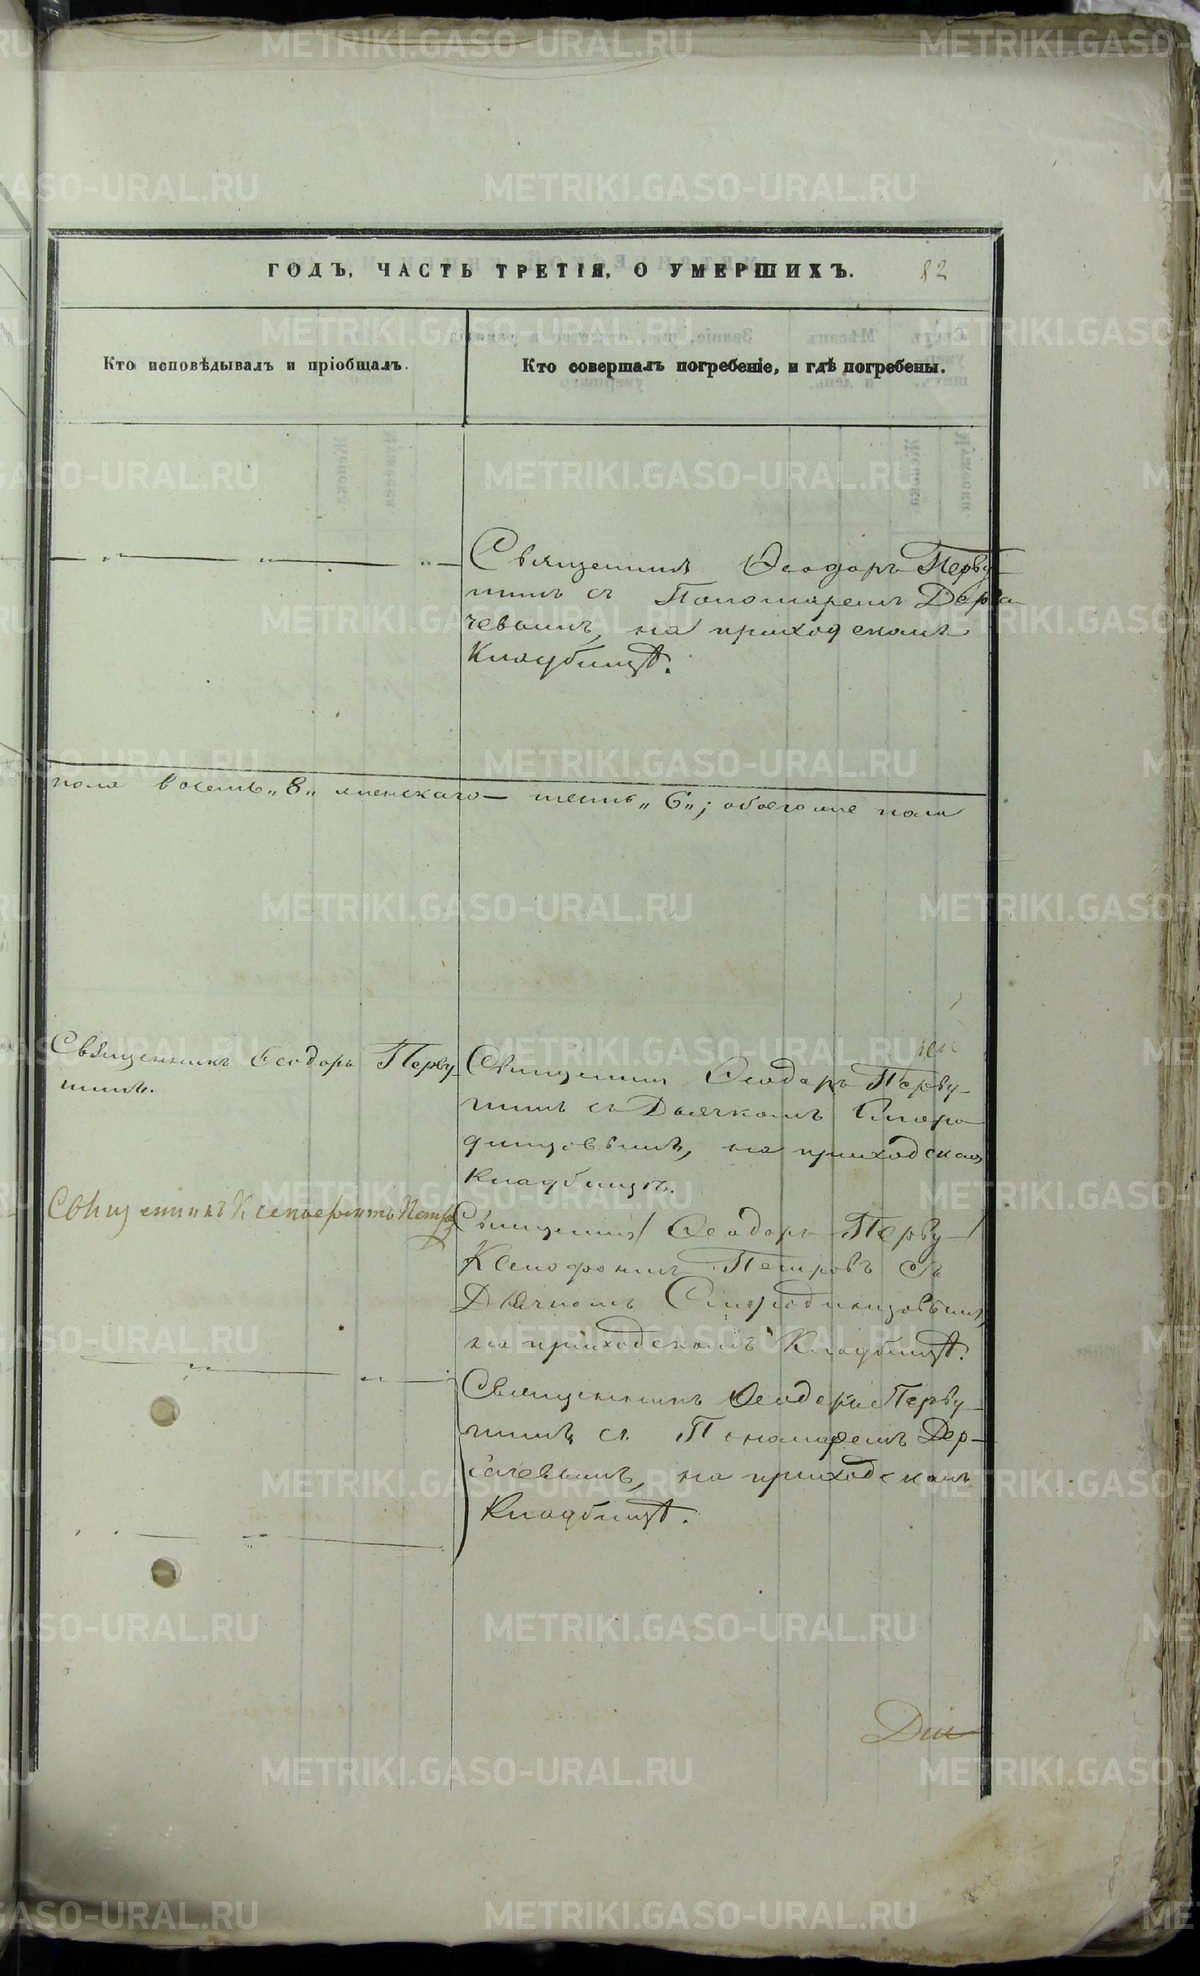 ГОДЪ, ЧАСТЬ ТРЕТІЯ, О УМЕРШИХЪ.
82
Кто исповѣдывалъ и пріобщалъ.
Кто совершалъ погребеніе, и гдѣ погребены.
Священникъ Ѳеодоръ Перву-
шинъ съ Пономаремъ Дерга-
чевымъ, на приходскомъ
Кладбищѣ.
пола восемь „8„ женскаго — шесть „6„; обоего же пола
Священникъ Ѳеодоръ Перву-
шинъ.
Священникъ Ѳеодоръ Перву-
шинъ съ Дьячкомъ Сморо-
динцовымъ, на приходскомъ
Кладбищѣ.
Священникъ Ксенофонтъ Петровъ
Священникъ Ѳеодоръ Перву-
Ксенофонтъ Петровъ съ
Дьячкомъ Смородинцовымъ,
на приходскомъ Кладбищѣ.
Священникъ Ѳеодоръ Перву-
шинъ съ Пономаремъ Дер-
гачевымъ, на приходскомъ
Кладбищѣ.
METRIKI.GASO-URAL.RU